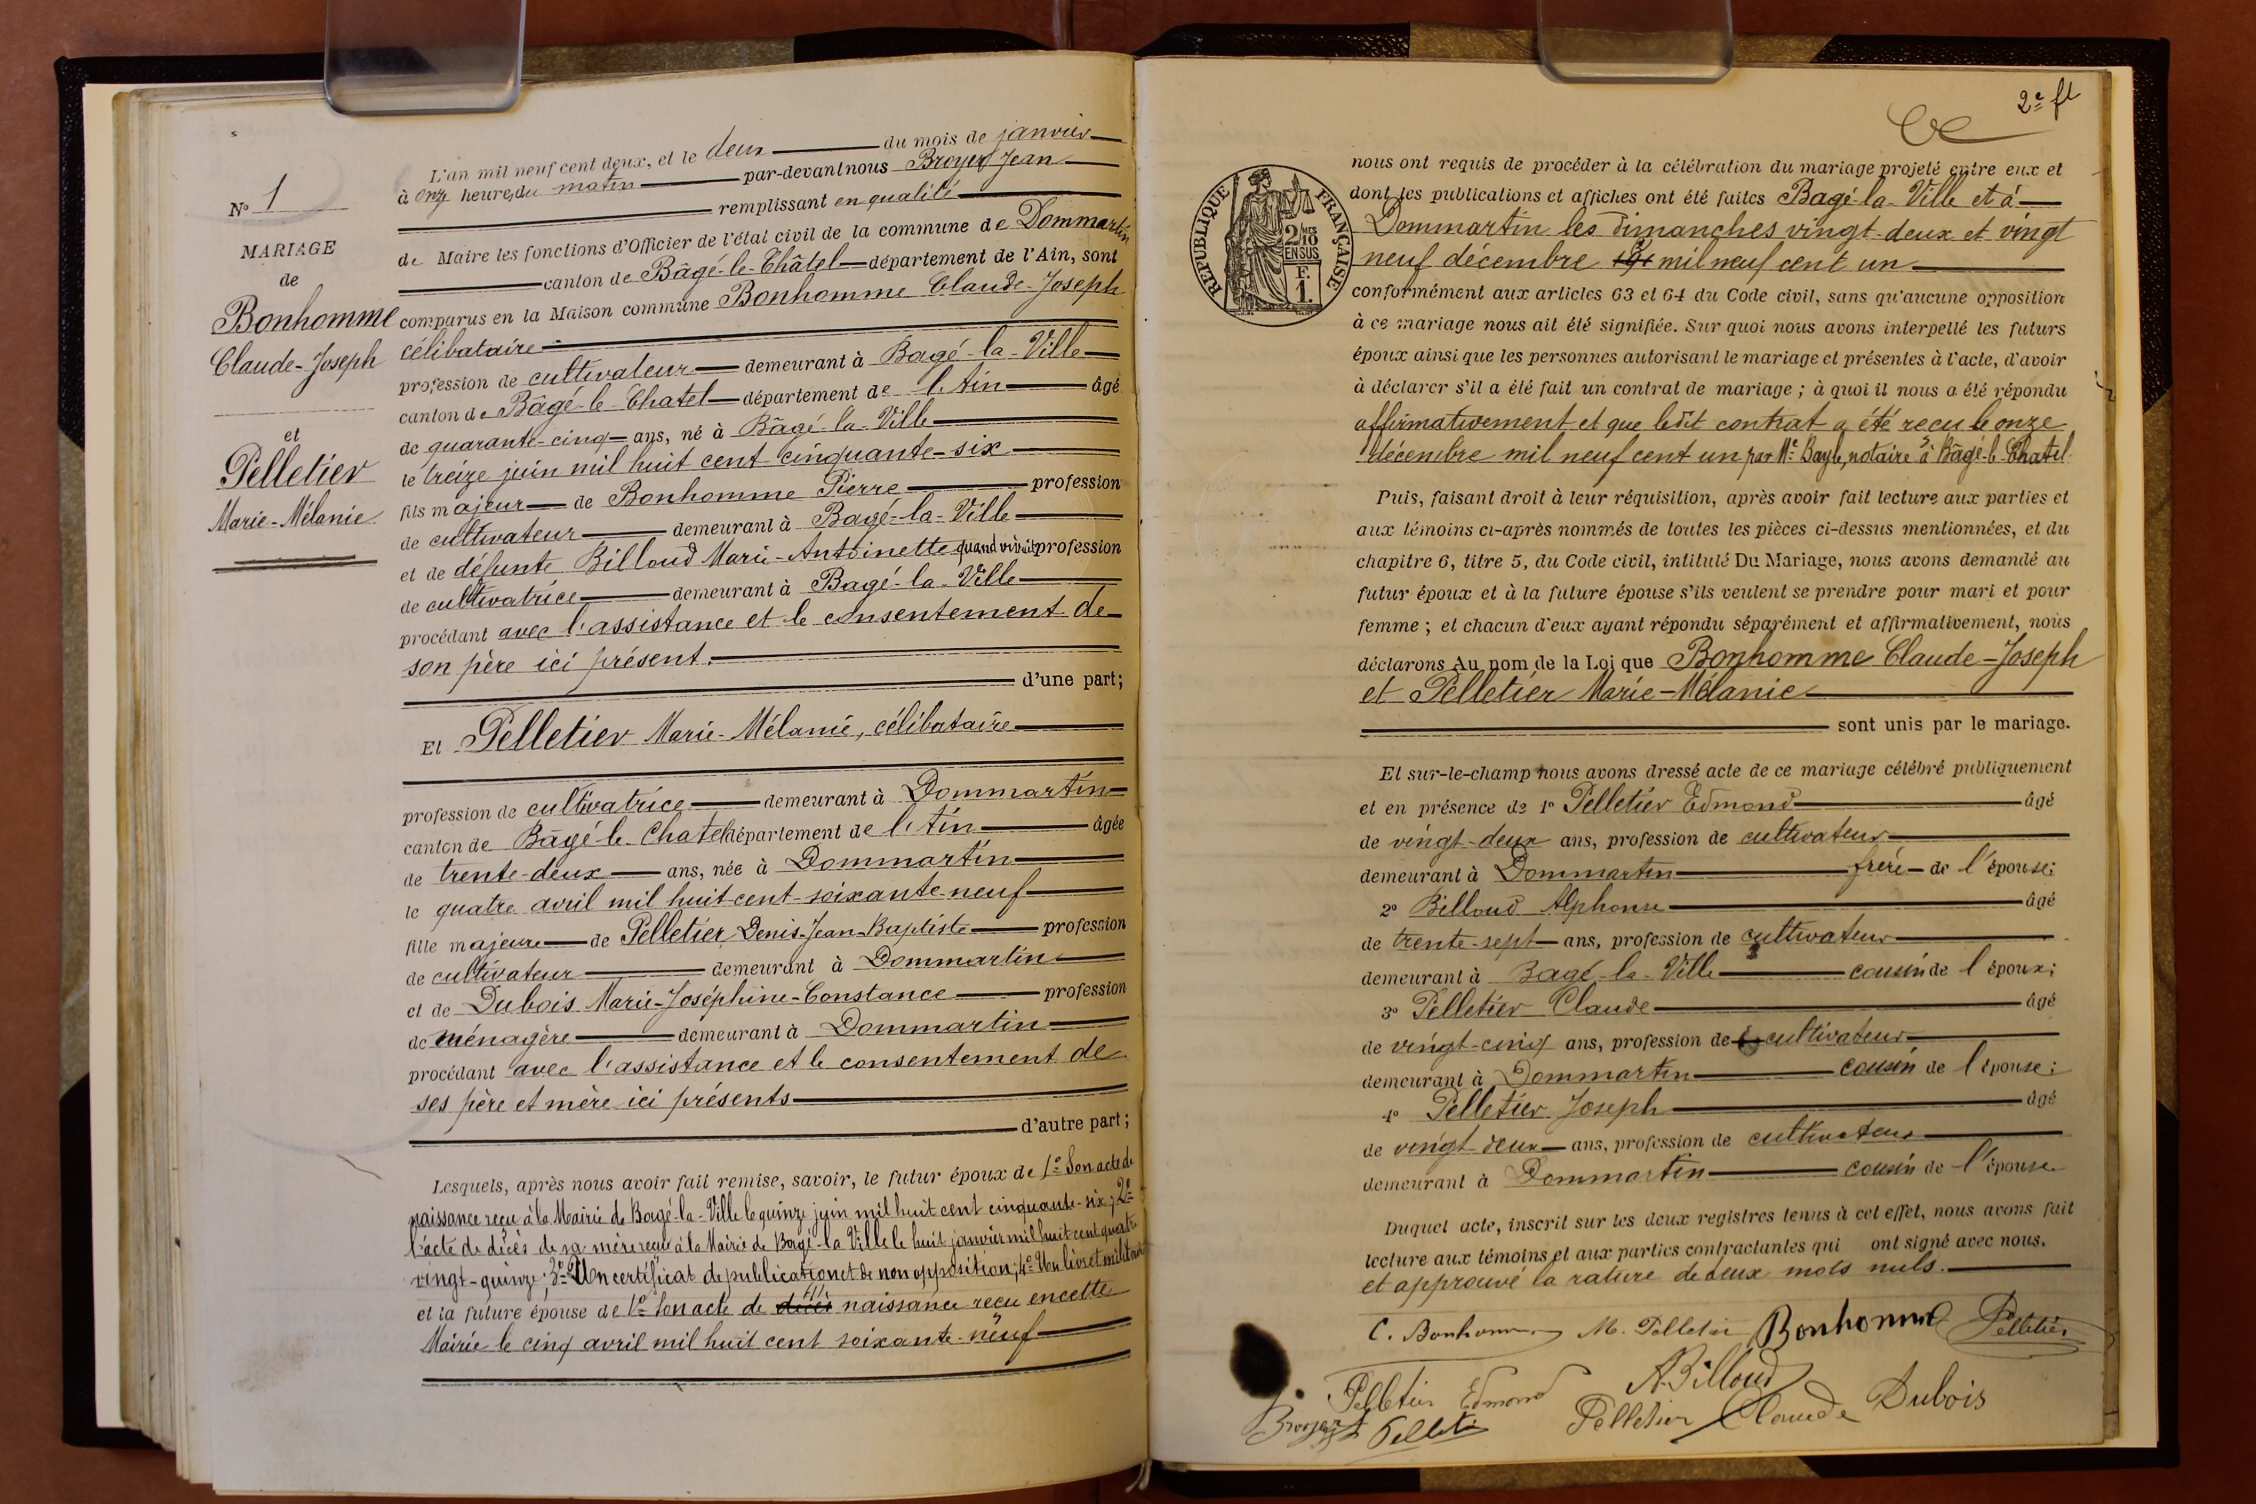 N° 1
MARIAGE
de
Bonhomme
Claude-Joseph
et
Pelletier
Marie-Mélanie
L'an mil neuf cent deux, et le deux du mois de janvier
à onze heures du matin par-devant nous Broyer Jean
remplissant en qualité
de Maire les fonctions d'Officier de l'état civil de la commune de Dommartin
canton de Bâgé-le-Châtel département de l'Ain, sont
comparus en la Maison commune Bonhomme Claude-Joseph
célibataire
profession de cultivateur demeurant à Bagé-la-Ville
canton de Bâgé-le-Chatel département de l'Ain âgé
de quarante-cinq ans, né à Bâgé-la-Ville
le treize juin mil huit cent cinquante-six
fils majeur de Bonhomme Pierre profession
de cultivateur demeurant à Bagé-la-Ville
et de défunte Billoud Marie-Antoinette quand vivait profession
de cultivatrice demeurant à Bagé-la-Ville
procédant avec l'assistance et le consentement de
son père ici présent.
d'une part;
Et Pelletier Marie-Mélanie, célibataire
profession de cultivatrice demeurant à Dommartin
canton de Bâgé-le-Chatel département de l'Ain âgée
de trente-deux ans, née à Dommartin
le quatre avril mil huit-cent-soixante-neuf
fille majeure de Pelletier Denis-Jean-Baptiste profession
de cultivateur demeurant à Dommartin
et de Dubois Marie-Joséphine-Constance profession
de ménagère demeurant à Dommartin
procédant avec l'assistance et le consentement de
ses père et mère ici présents
d'autre part;
Lesquels, après nous avoir fait remise, savoir, le futur époux de 1° Son acte de
naissance reçu à la Mairie de Bagé-la-Ville le quinze juin mil huit cent cinquante-six; 2°
l'acte de décès de sa mère reçu à la Mairie de Bagé-la Ville le huit janvier mil huit cent quatre
vingt-quinze; 3° Un certificat de publication et de non opposition; 4° Un livret militaire
et la future épouse de 1° Son acte de décès naissance reçu en cette
Mairie le cinq avril mil huit cent soixante-neuf
2e ft
REPUBLIQUE FRANÇAISE
2/10 MES
EN SUS
F.
1.
nous ont requis de procéder à la célébration du mariage projeté entre eux et
dont les publications et affiches ont été faites Bagé-la-Ville et à
Dommartin les dimanches vingt-deux et vingt
neuf décembre mil neuf cent un
conformément aux articles 63 et 64 du Code civil, sans qu'aucune opposition
à ce mariage nous ait été signifiée. Sur quoi nous avons interpellé les futurs
époux ainsi que les personnes autorisant le mariage et présentes à l'acte, d'avoir
à déclarer s'il a été fait un contrat de mariage; à quoi il nous a été répondu
affirmativement et que ledit contrat a été reçu le onze
décembre mil neuf cent un par Me Bayle, notaire à Bâgé-le-Chatel
Puis, faisant droit à leur réquisition, après avoir fait lecture aux parties et
aux témoins ci-après nommés de toutes les pièces ci-dessus mentionnées, et du
chapitre 6, titre 5, du Code civil, intitulé Du Mariage, nous avons demandé au
futur époux et à la future épouse s'ils veulent se prendre pour mari et pour
femme; et chacun d'eux ayant répondu séparément et affirmativement, nous
déclarons Au nom de la Loi que Bonhomme Claude-Joseph
et Pelletier Marie-Mélanie
sont unis par le mariage.
Et sur-le-champ nous avons dressé acte de ce mariage célébré publiquement
et en présence de 1° Pelletier Edmond âgé
de vingt-deux ans, profession de cultivateur
demeurant à Dommartin frère de l'épouse;
2° Billoud Alphonse âgé
de trente-sept ans, profession de cultivateur
demeurant à Bagé-la-Ville cousin de l'époux;
3° Pelletier Claude âgé
de vingt-cinq ans, profession de cultivateur
demeurant à Dommartin cousin de l'épouse;
4° Pelletier Joseph âgé
de vingt-deux ans, profession de cultivateur
demeurant à Dommartin cousin de l'épouse
Duquel acte, inscrit sur les deux registres tenus à cet effet, nous avons fait
lecture aux témoins et aux parties contractantes qui ont signé avec nous.
et approuvé la rature de deux mots nuls.
C. Bonhomme M. Pelletier Bonhomme Pelletier
Pelletier Edmond A. Billoud
Broyer J. Pelletier Pelletier Claude Dubois